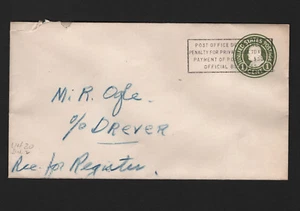 POST OFFICE D
PENALTY FOR PRIVA
PAYMENT OF PO
OFFICIAL B
UNITED STATES
Mr. R. Ogle
c/o DREVER
Rec. for Register.